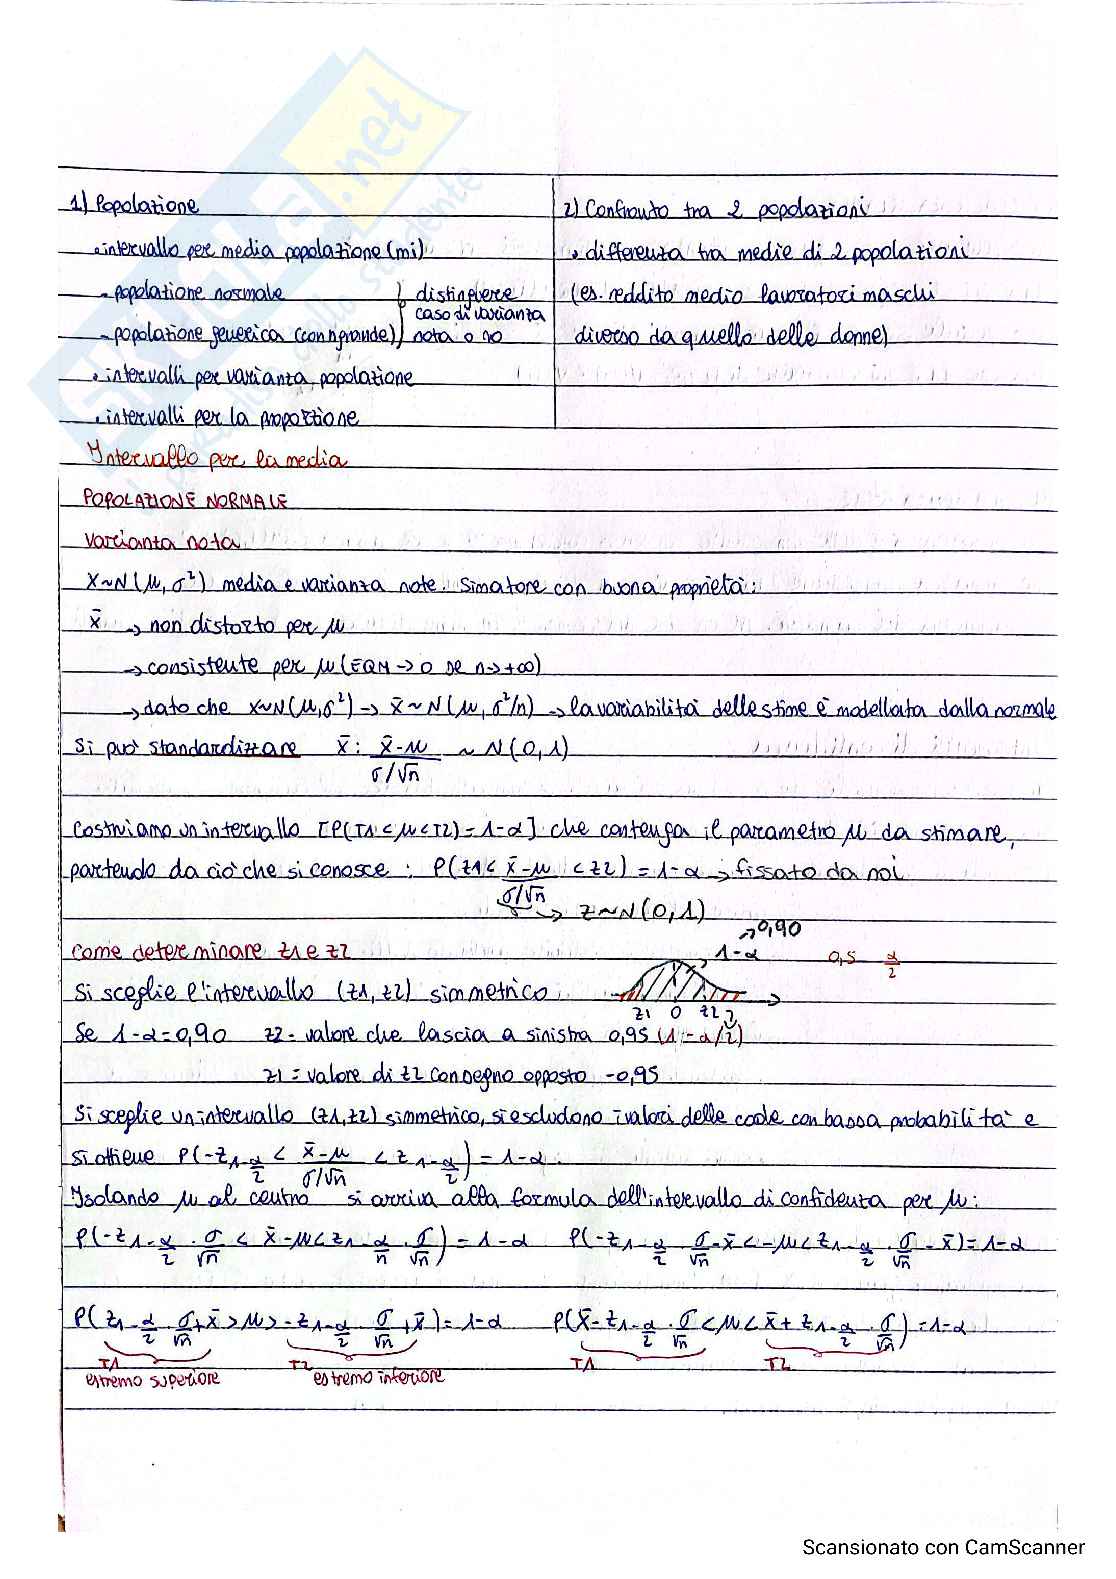 1) Popolazione
• intervallo per media popolazione (mi)
- popolazione normale
- popolazione generica (con n grande)
distinguere
caso di varianza
nota o no
• intervalli per varianza popolazione
• intervalli per la proporzione
2) Confronto tra 2 popolazioni
• differenza tra medie di 2 popolazioni
(es. reddito medio lavoratori maschi
diverso da quello delle donne)
Intervallo per la media
POPOLAZIONE NORMALE
Varianza nota
X~N(μ, σ²) media e varianza note. Simatore con buona proprietà:
x̄ → non distorto per μ
→ consistente per μ (EQM → 0 se n → +∞)
→ dato che x~N(μ,σ²) → x̄ ~ N(μ, σ²/n) → la variabilità delle stime è modellata dalla normale
Si può standardizzare x̄: (x̄-μ)/(σ/√n) ~ N(0,1)
Costruiamo un intervallo [P(T1<μ<T2)=1-α] che contenga il parametro μ da stimare,
partendo da ciò che si conosce: P(z1 < (x̄-μ)/(σ/√n) < z2) = 1-α → fissato da noi
→ Z~N(0,1)
Come determinare z1 e z2
→ 0,90
1-α
0,5 α/2
Si sceglie l'intervallo (z1, z2) simmetrico
z1 0 z2
Se 1-α=0,90 z2= valore che lascia a sinistra 0,95 (1-α/2)
z1 = valore di z2 con segno opposto -0,95
Si sceglie un intervallo (z1,z2) simmetrico, si escludono i valori delle code con bassa probabilità e
si ottiene P(-z1-α/2 < (x̄-μ)/(σ/√n) < z1-α/2) = 1-α.
Isolando μ al centro si arriva alla formula dell'intervallo di confidenza per μ:
P(-z1-α/2 · σ/√n < x̄-μ < z1-α/n · σ/√n) = 1-α P(-z1-α/2 σ/√n - x̄ < -μ < z1-α/2 · σ/√n - x̄) = 1-α
P(z1-α/2 · σ/√n + x̄ > μ > -z1-α/2 σ/√n + x̄) = 1-α P(x̄ - z1-α/2 · σ/√n < μ < x̄ + z1-α/2 · σ/√n) = 1-α
T1 T2 T1 T2
estremo superiore estremo inferiore
SKUOLA.net
Scansionato con CamScanner